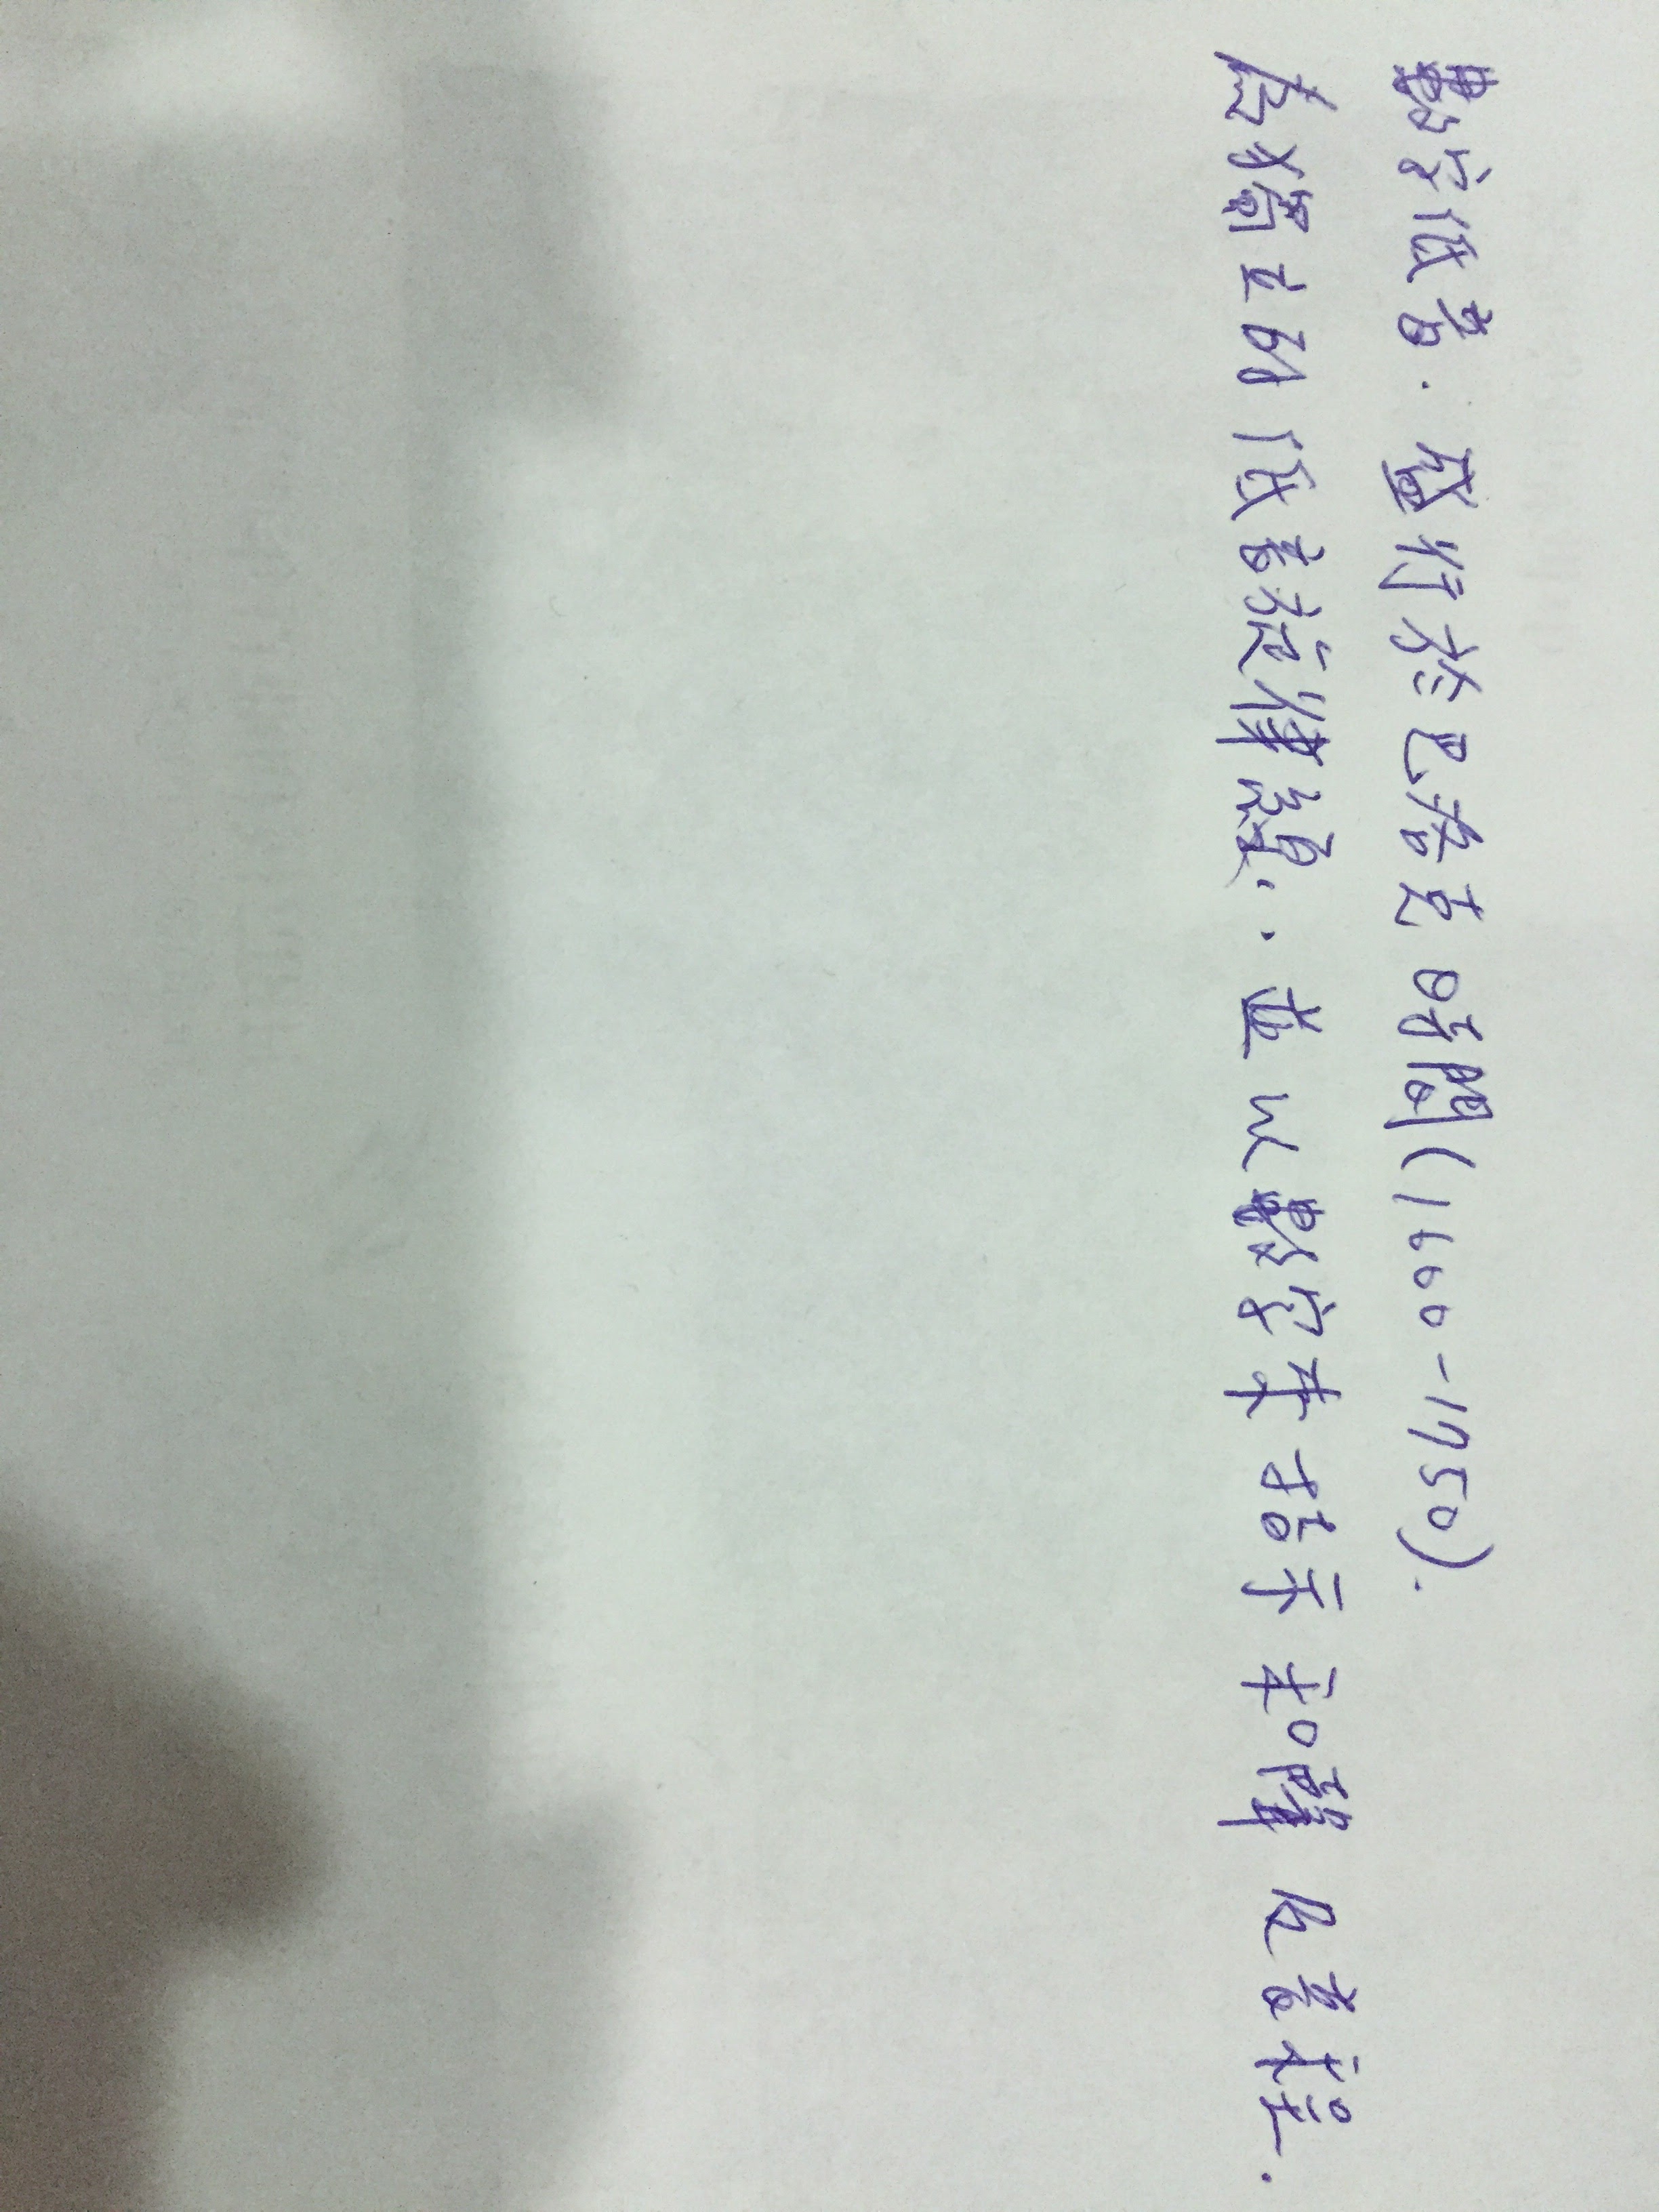 數字低音．盛行於巴洛克時間(1600-1750).
為獨立的低音旋律線．．並以數字來指示和聲及音程．